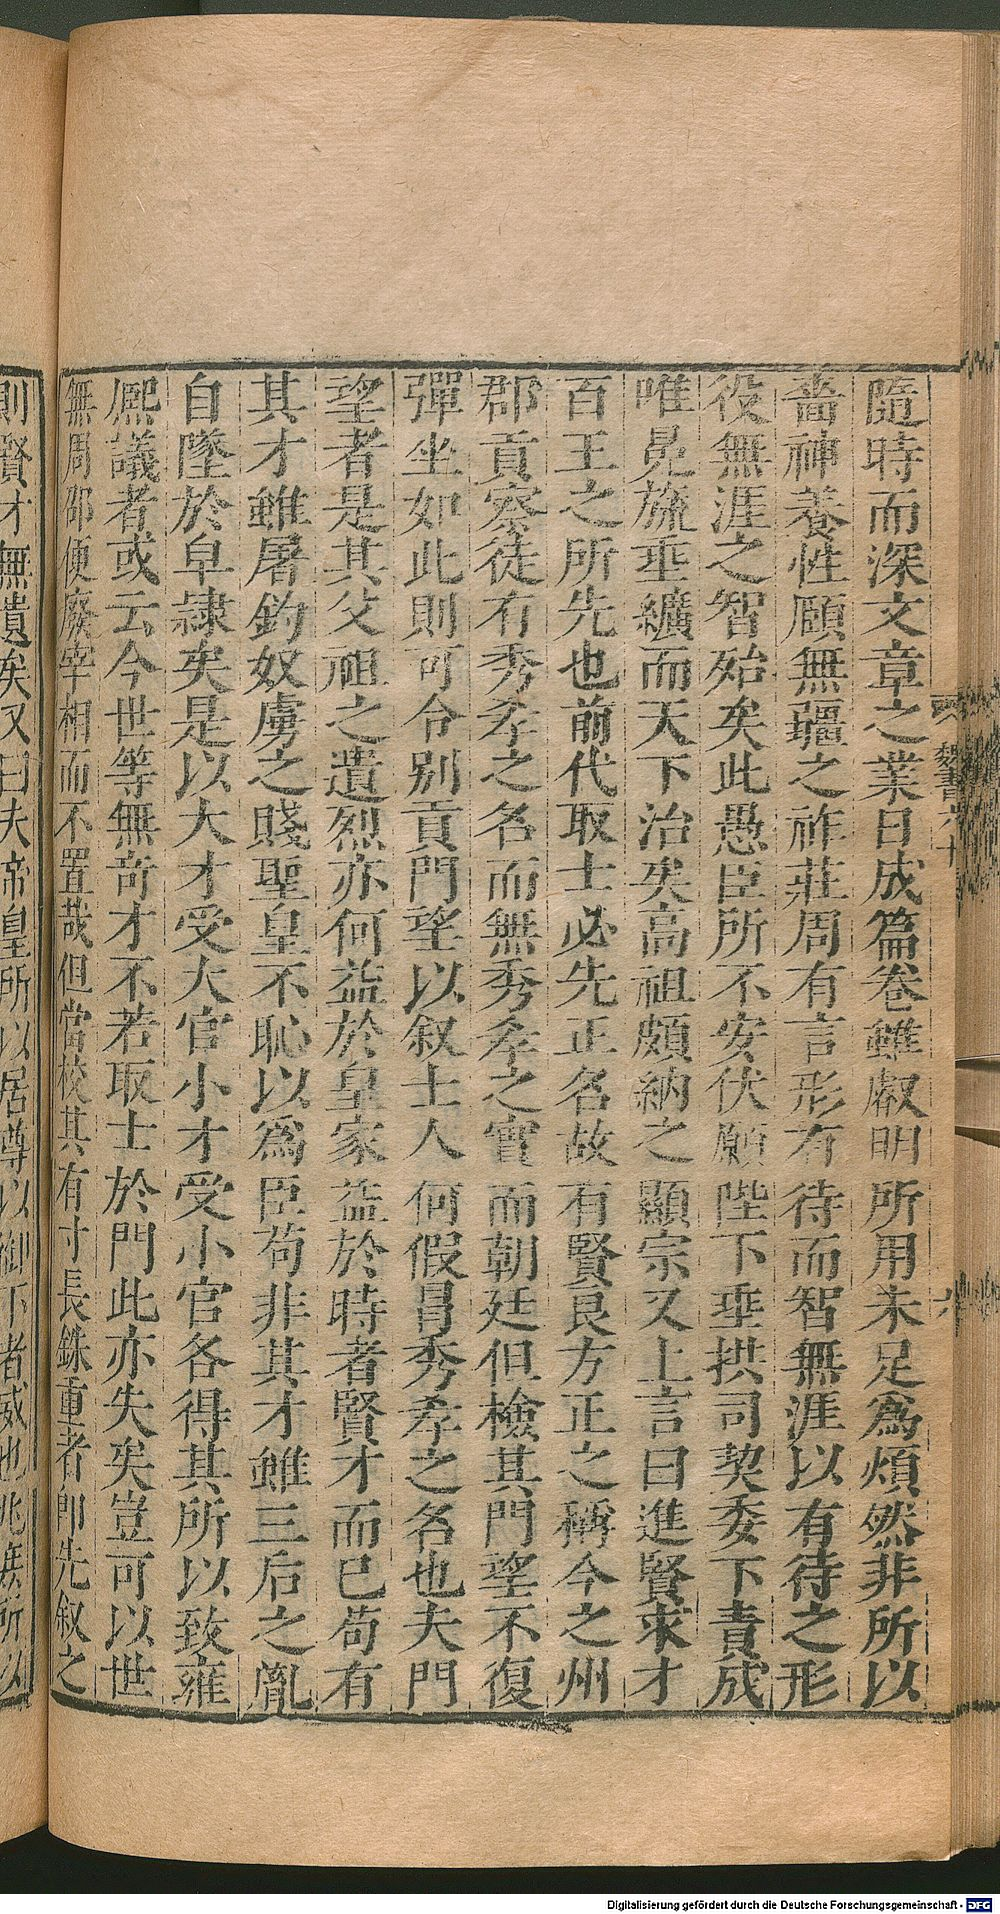 隨時而深文章之業日成篇卷雖叡明所用未足為煩然非所以
嗇神養性願無疆之祚莊周有言形有待而智無涯以有待之形
役無涯之智殆矣此愚臣所不安伏願陛下垂拱司契委下責成
唯冕旒垂纊而天下治矣高祖頗納之顯宗又上言曰進賢求才
百王之所先也前代取士必先正名故有賢良方正之稱今之州
郡貢察徒有秀孝之名而無秀孝之實而朝廷但檢其門望不復
彈坐如此則可令別貢門望以叙士人何假冒秀孝之名也夫門
望者是其父祖之遺烈亦何益於皇家益於時者賢才而已苟有
其才雖屠釣奴虜之賤聖皇不恥以為臣苟非其才雖三后之胤
自墜於皁隸矣是以大才受大官小才受小官各得其所以致雍
熙議者或云今世等無奇才不若取士於門此亦失矣豈可以世
無周邵便廢宰相而不置哉但當校其有寸長銖重者即先叙之
則賢才無遺矣又曰夫帝皇所以居尊以御下者威也兆庶所以
魏書六十
Digitalisierung gefördert durch die Deutsche Forschungsgemeinschaft - DFG